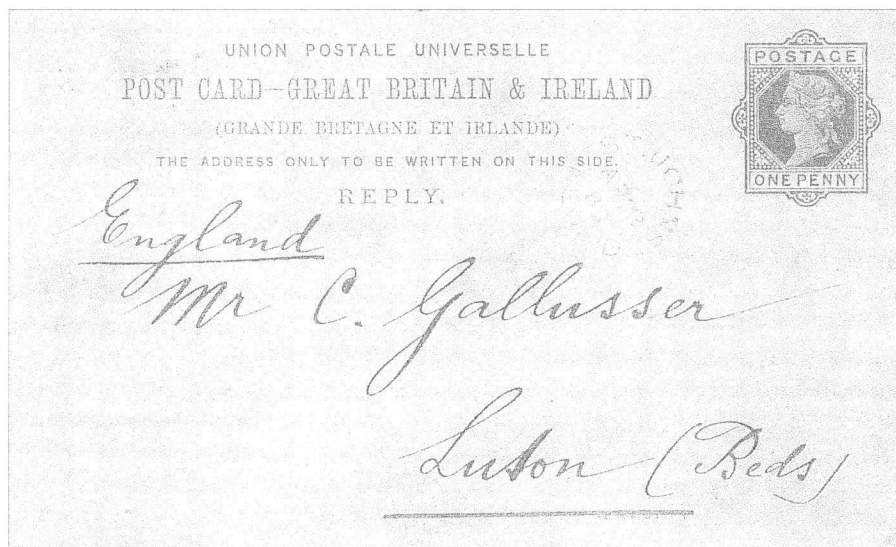 UNION POSTALE UNIVERSELLE
POST CARD-GREAT BRITAIN & IRELAND
(GRANDE BRETAGNE ET IRLANDE)
THE ADDRESS ONLY TO BE WRITTEN ON THIS SIDE.
REPLY.
POSTAGE
ONE PENNY
England
Mr C. Gallusser
Luton (Beds)